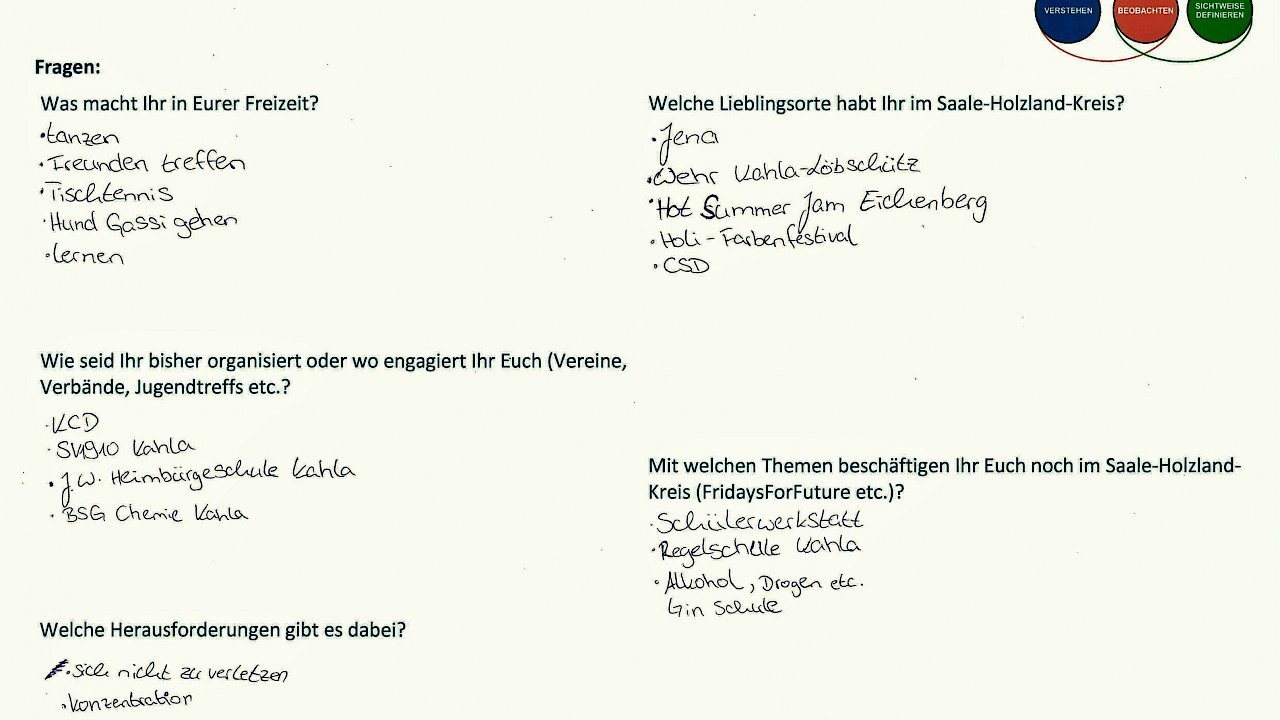 VERSTEHEN
BEOBACHTEN
SICHTWEISE
DEFINIEREN
Fragen:
Was macht Ihr in Eurer Freizeit?
•tanzen
•Freunden treffen
•Tischtennis
•Hund Gassi gehen
•lernen
Welche Lieblingsorte habt Ihr im Saale-Holzland-Kreis?
•Jena
•Wehr Kahla-Löbschütz
•Hot Summer Jam Eichenberg
•Holi-Farbenfestival
•CSD
Wie seid Ihr bisher organisiert oder wo engagiert Ihr Euch (Vereine,
Verbände, Jugendtreffs etc.?
•KCD
•SV1910 Kahla
•J.W. Heimbürgeschule Kahla
•BSG Chemie Kahla
Mit welchen Themen beschäftigen Ihr Euch noch im Saale-Holzland-
Kreis (FridaysForFuture etc.)?
•Schülerwerkstatt
•Regelschule Kahla
•Alkohol, Drogen etc.
in Schule
Welche Herausforderungen gibt es dabei?
•sich nicht zu verletzen
•Konzentration